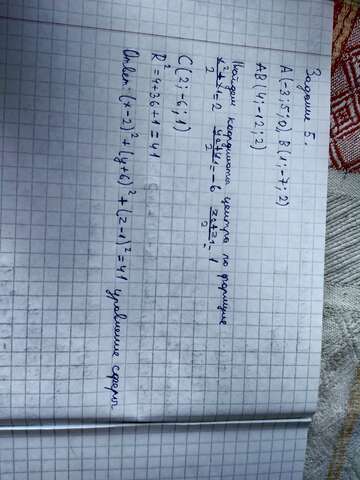 Задание 5.
A (-3; 5; 0), B (1; -7; 2)
AB (4; -12; 2)
Найдем координаты центра по формуле
x°+x1/2 = 2 y°+y1/2 = -6 z°+z1/2 = 1
C (2; -6; 1)
R² = 4+36+1 = 41
Ответ: (x-2)² + (y+6)² + (z-1)² = 41 уравнение сферы